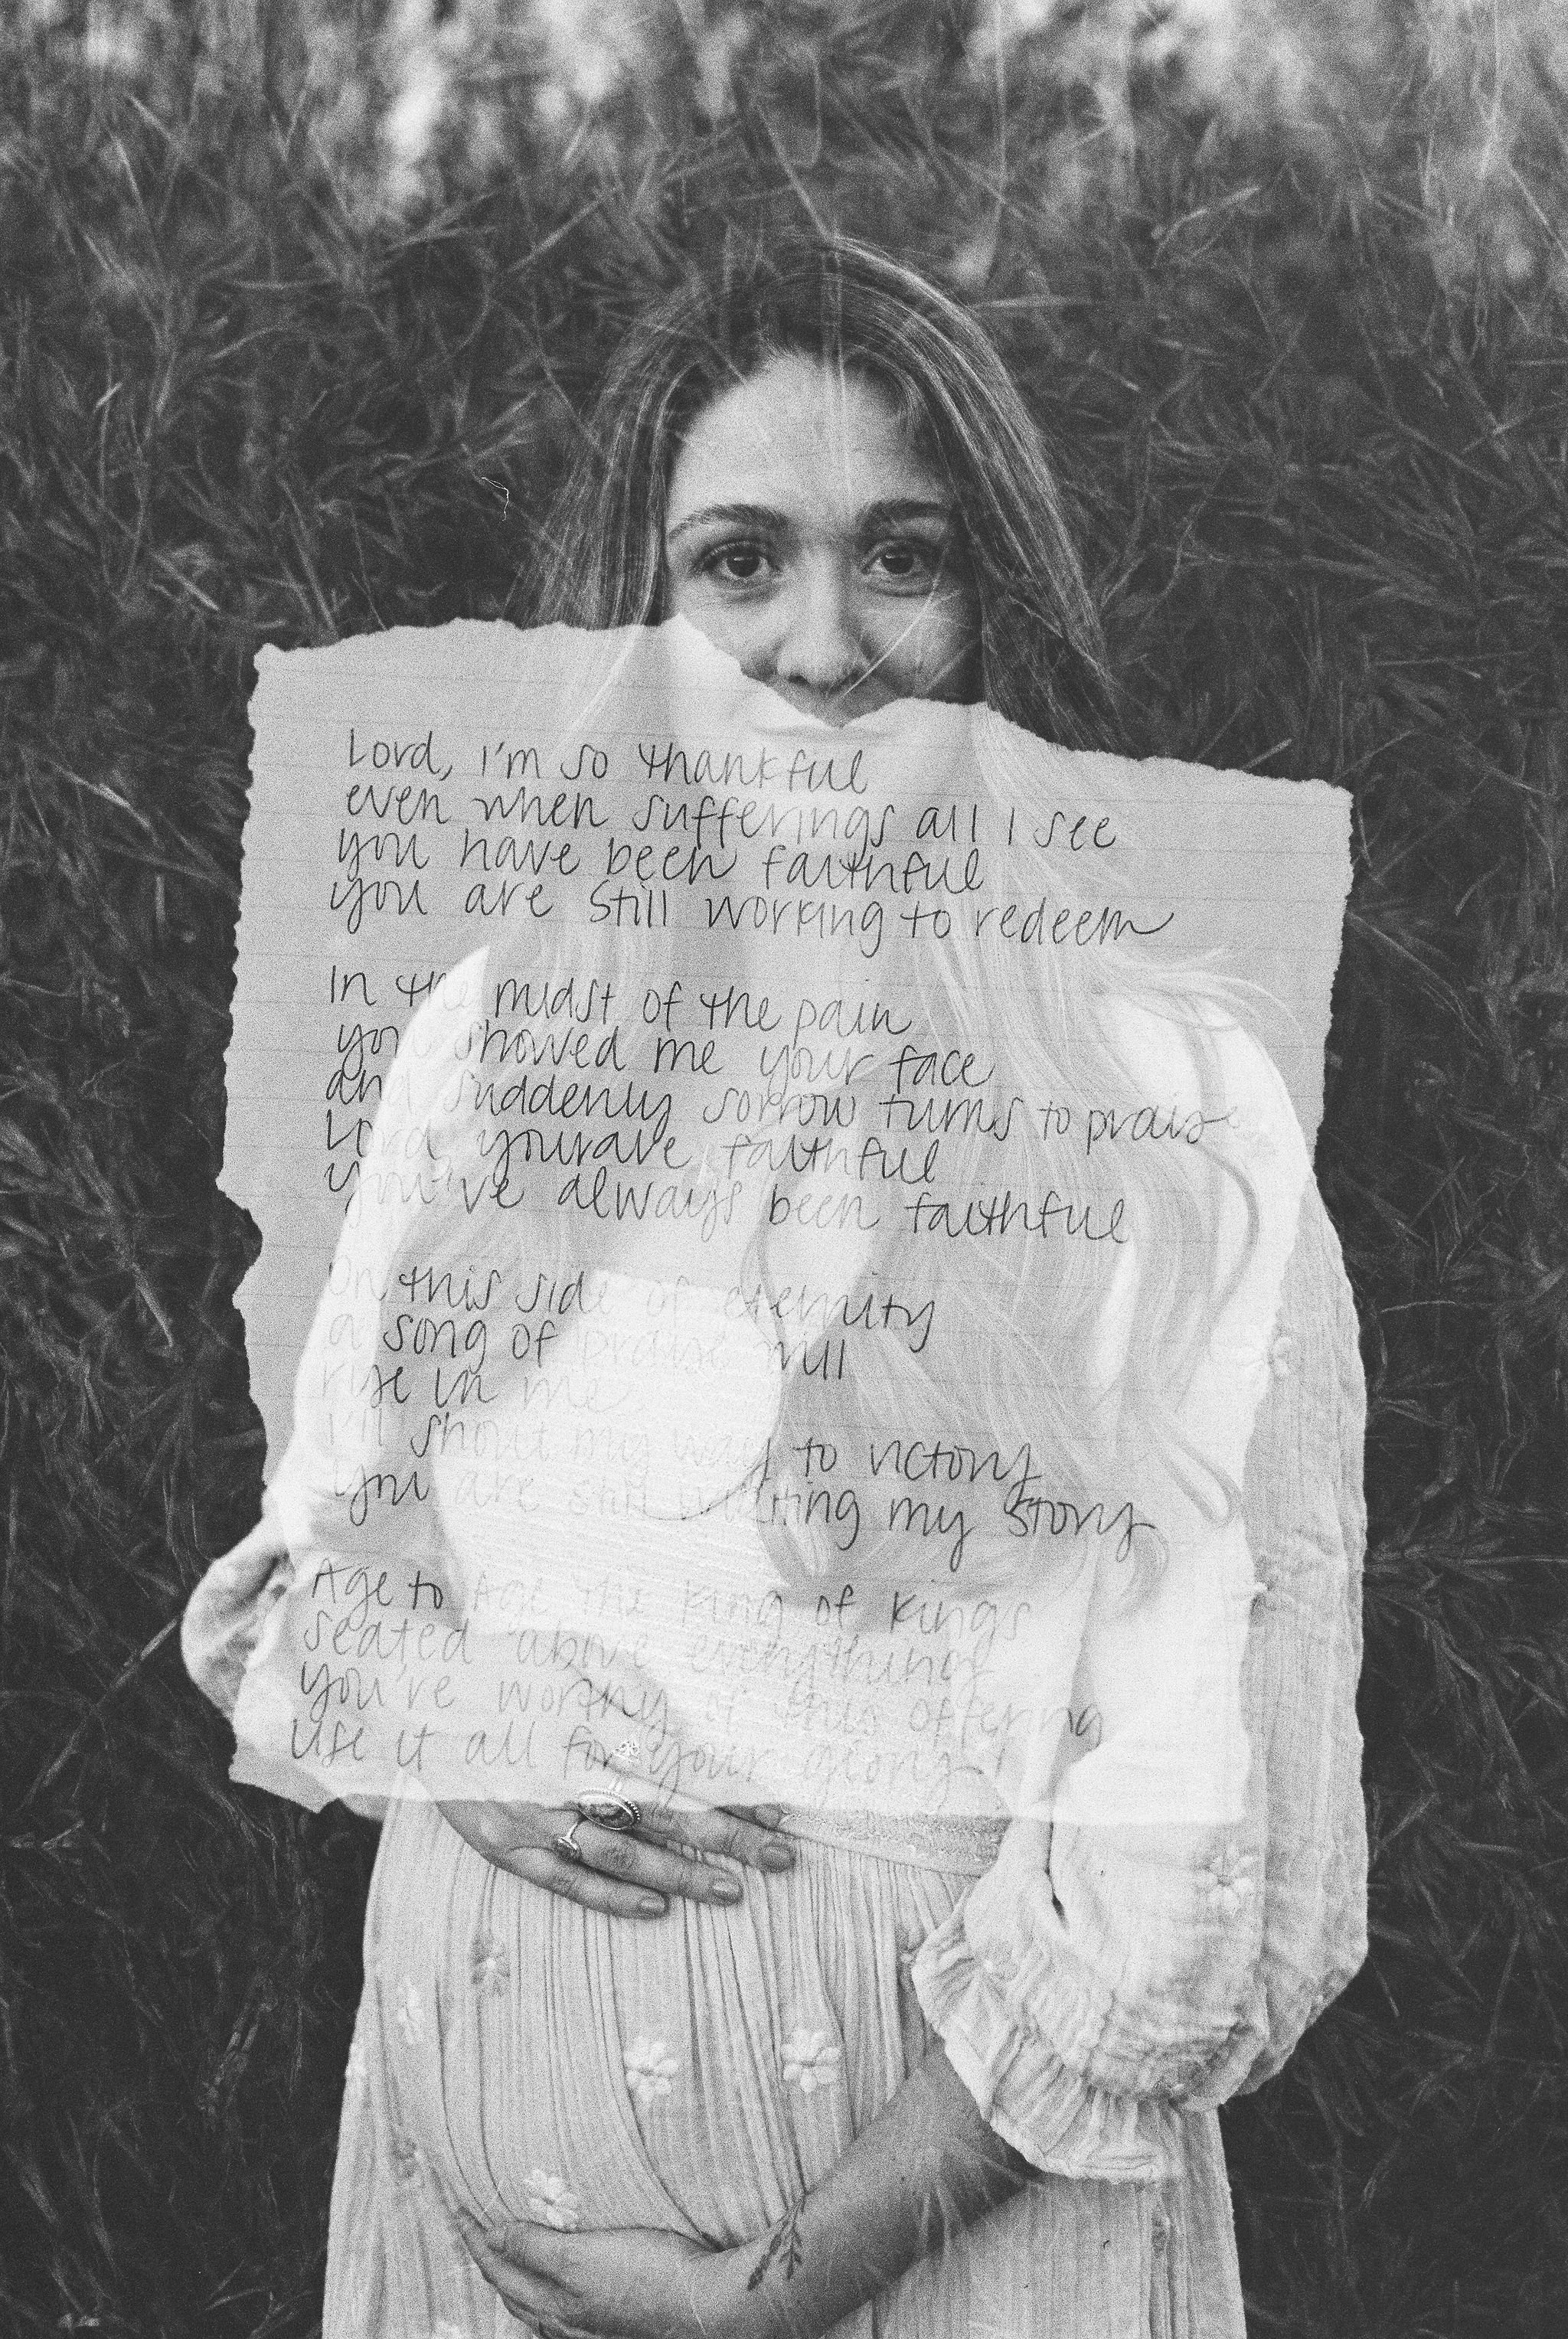 Lord, I'm so thankful
even when sufferings all I see
you have been faithful
you are still working to redeem
In the midst of the pain
you showed me your face
and suddenly sorrow turns to praise
Lord yourare faithful
you've always been faithful
On this side of eternity
a song of praise will
rise in me
I'll shout my way to victory
you are still writing my story
Age to Age the king of kings
seated above everything
you're worthy of this offering
use it all for your glory!